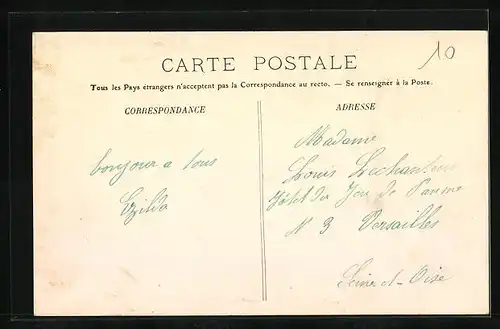 CARTE POSTALE
10
Tous les Pays étrangers n'acceptent pas la Correspondance au recto. — Se renseigner à la Poste.
CORRESPONDANCE
bonjour a tous
ADRESSE
Madame
Louis
Hôtel du Jeu de Paume
N 3 Versailles
Seine-et-Oise